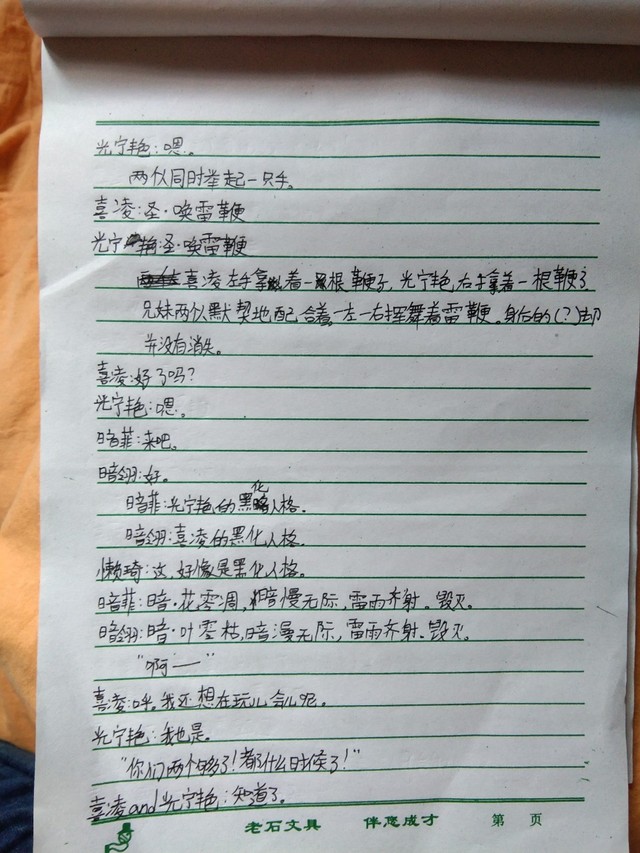 光宁艳:嗯。
两人同时举起一只手。
喜凌:圣·唤雷鞭
光宁艳:圣·唤雷鞭
喜凌左手拿着一根鞭子,光宁艳右手拿着一根鞭子
兄妹两人默契地配合着一左一右挥舞着雷鞭。身后的(?)却
并没有消失。
喜凌:好了吗?
光宁艳:嗯。
暗菲:来吧。
暗翎:好。
暗菲:光宁艳的黑化人格。
暗翎:喜凌的黑化人格。
懒琦:这,好像是黑化人格。
暗菲:暗·花零凋,暗慢无际,雷雨齐射。毁灭。
暗翎:暗·叶零枯,暗漫无际,雷雨齐射。毁灭。
“啊——”
喜凌:呼,我还想在玩儿会儿呢。
光宁艳:我也是。
“你们两个够了!都什么时候了!”
喜凌and光宁艳:知道了。
老石文具 伴您成才 第 页